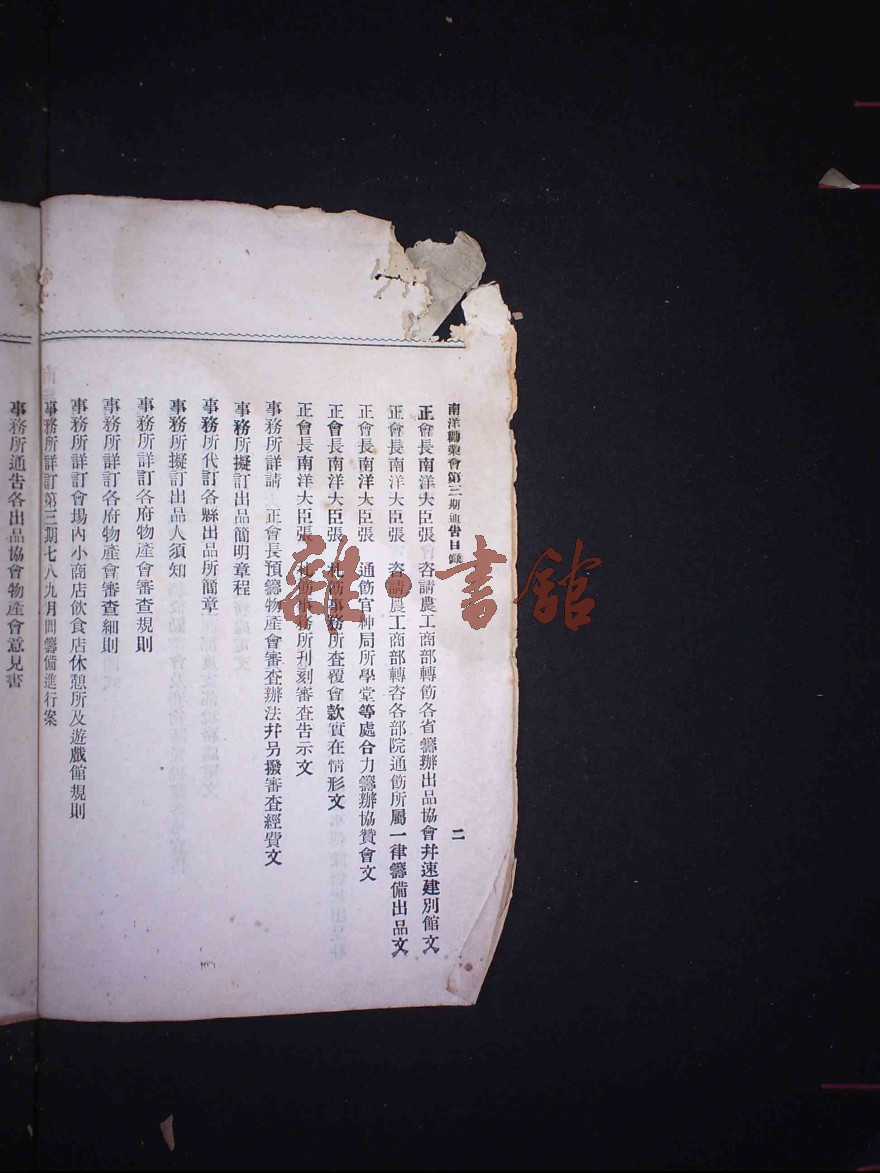 南洋勸業會第三期通告目錄 二
正會長南洋大臣張 咨請農工商部轉飭各省籌辦出品協會并速建別館文
正會長南洋大臣張 咨請農工商部轉咨各部院通飭所屬一律籌備出品文
正會長南洋大臣張 通飭官紳局所學堂等處合力籌辦協贊會文
正會長南洋大臣張 札飭事務所查覆會款實在情形文
正會長南洋大臣張 札飭事務所刊刻審查告示文
事務所詳請 正會長預籌物產會審查辦法并另撥審查經費文
事務所擬訂出品簡明章程
事務所代訂各縣出品所簡章
事務所擬訂出品人須知
事務所詳訂各府物產會審查規則
事務所詳訂各府物產會審查細則
事務所詳訂會場內小商店飲食店休憩所及遊戲館規則
事務所詳訂第三期七八九月間籌備進行案
事務所通告各出品協會物產會意見書
雜·書館